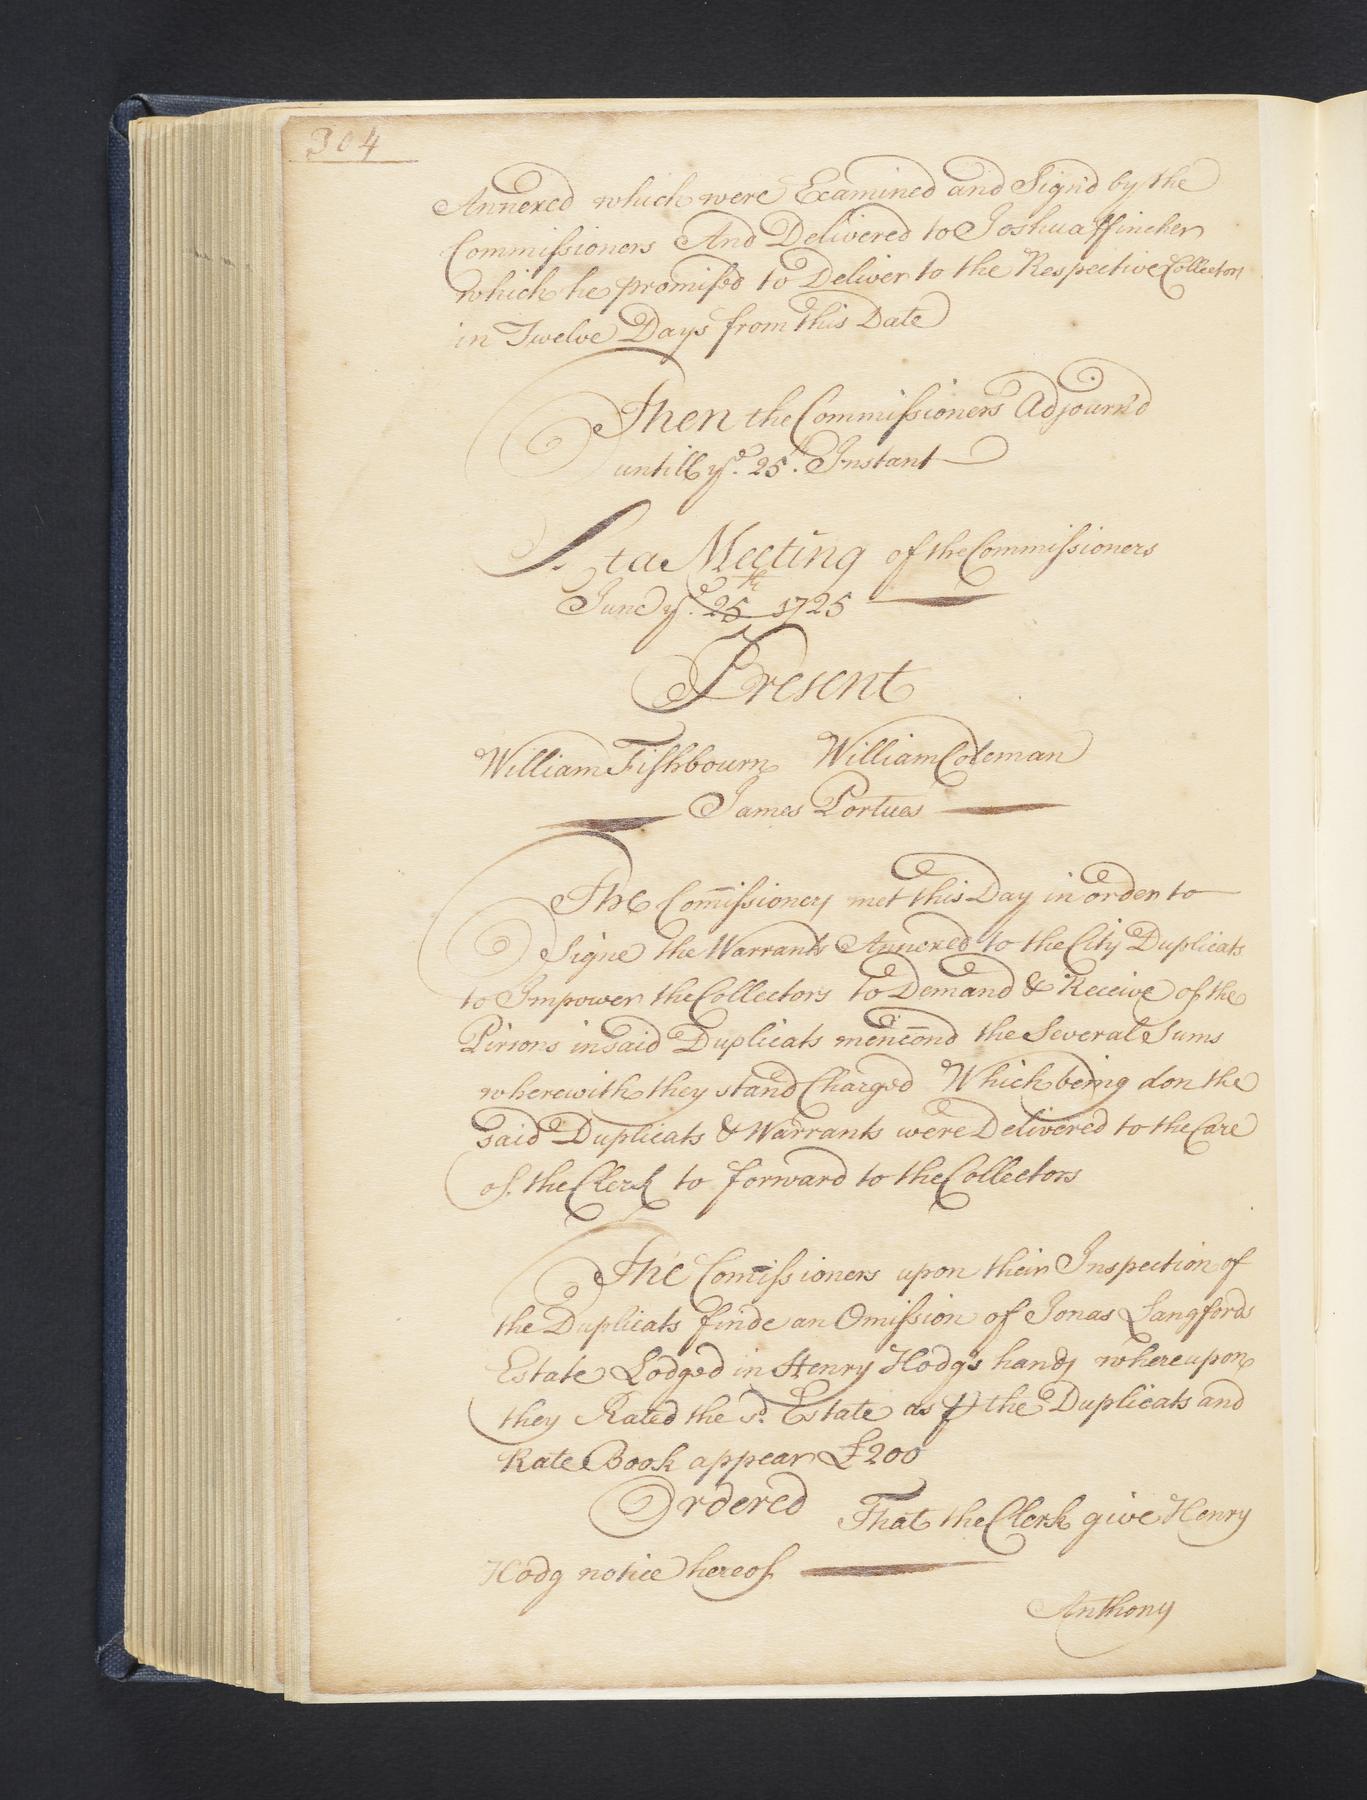 304
Annexed which were Examined and Sign'd by the
Commissioners And Delivered to Joshua ffincher
which he promised to Deliver to the Respective Collectors
in Twelve Days from this Date
Then the Commissioners Adjourn'd
untill ye. 25th. Instant
At a Meeting of the Commissioners
June ye. 25th 1725
Present
William Fishbourn William Coleman
James Portues
The Com̄issioners met this Day in order to
Signe the Warrants Annexed to the City Duplicats
to Impower the Collectors to Demand & Receive of the
Pirsons in said Duplicats menc̄ond the Several Sums
wherewith they stand Charged Which being don the
said Duplicats & Warrants were Delivered to the Care
of the Clerk to forward to the Collectors
The Com̄issioners upon their Inspection of
the Duplicats finde an Omission of Jonas Langfords
Estate Lodged in Henry Hodg's hands whereupon
they Rated the sd. Estate as ꝑ the Duplicats and
Rate Book appear £200
Ordered That the Clerk give Henry
Hodg notice hereof
Anthony